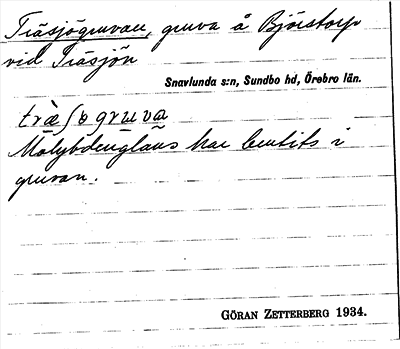 Träsjögruvan, gruva å Björstorp
vid Träsjön
Snavlunda s:n, Sundbo hd, Örebro län.
træ̀ʃo gruva
Molybdenglans har brutits i
gruvan.
GÖRAN ZETTERBERG 1934.